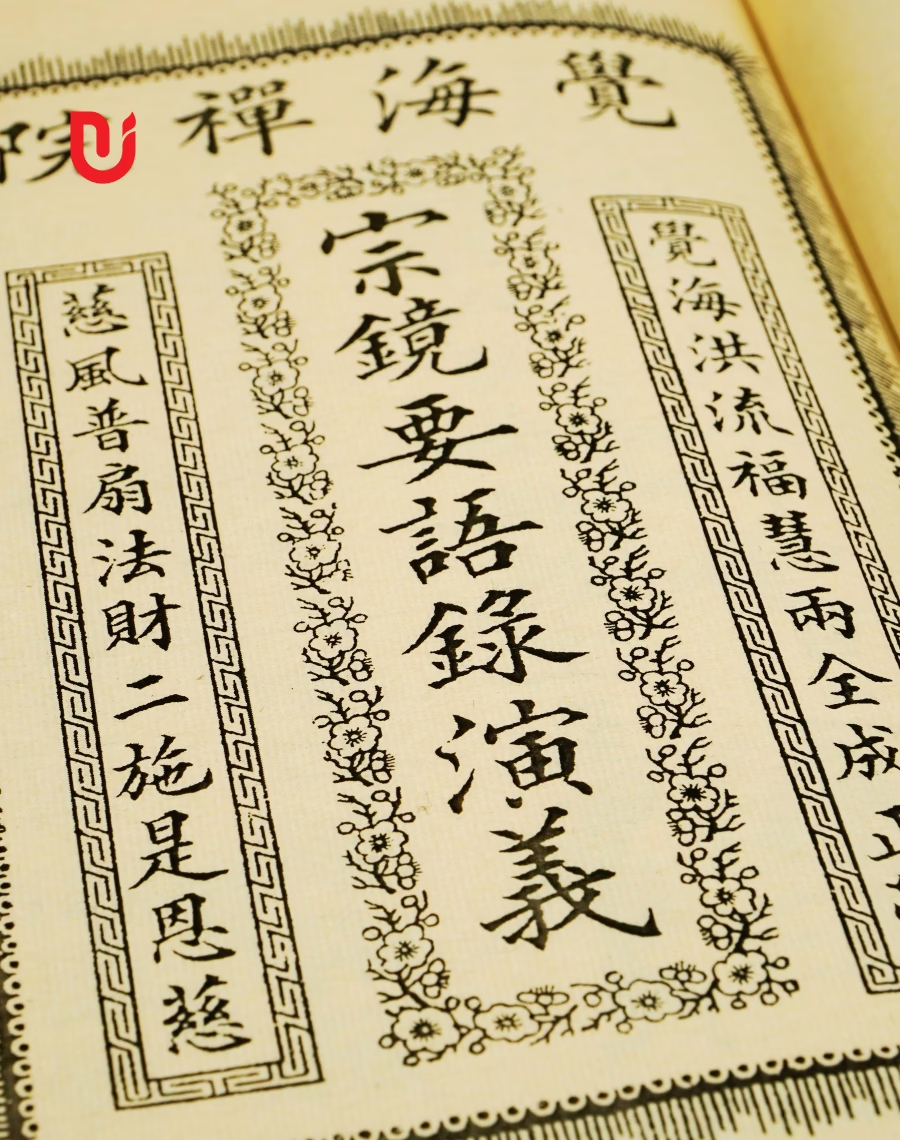 覺海禪院
覺海洪流福慧兩全成
宗鏡要語錄演義
慈風普扇法財二施是恩慈